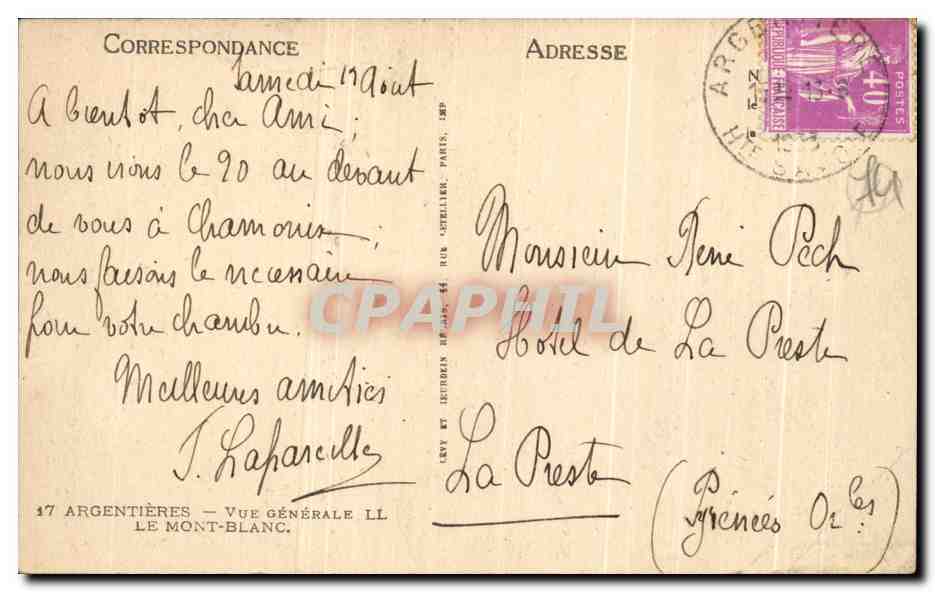 CORRESPONDANCE
Samedi 12 Août
A bientôt, cher Ami,
nous irons le 20 au devant
de vous à Chamonix,
nous faisons le nécessaire
pour votre chambre.
Meilleures amitiés
17 ARGENTIÈRES — VUE GÉNÉRALE LL
LE MONT-BLANC.
LÉVY ET NEURDEIN RÉUNIS, 44 RUE LETELLIER, PARIS, IMP
ADRESSE
ARGENTIERE
HTE SAVOIE
40c
POSTES
RÉPUBLIQUE FRANÇAISE
Monsieur René Pech
Hôtel de La Preste
La Preste
(Pyrénées Orles)
CPAPHIL